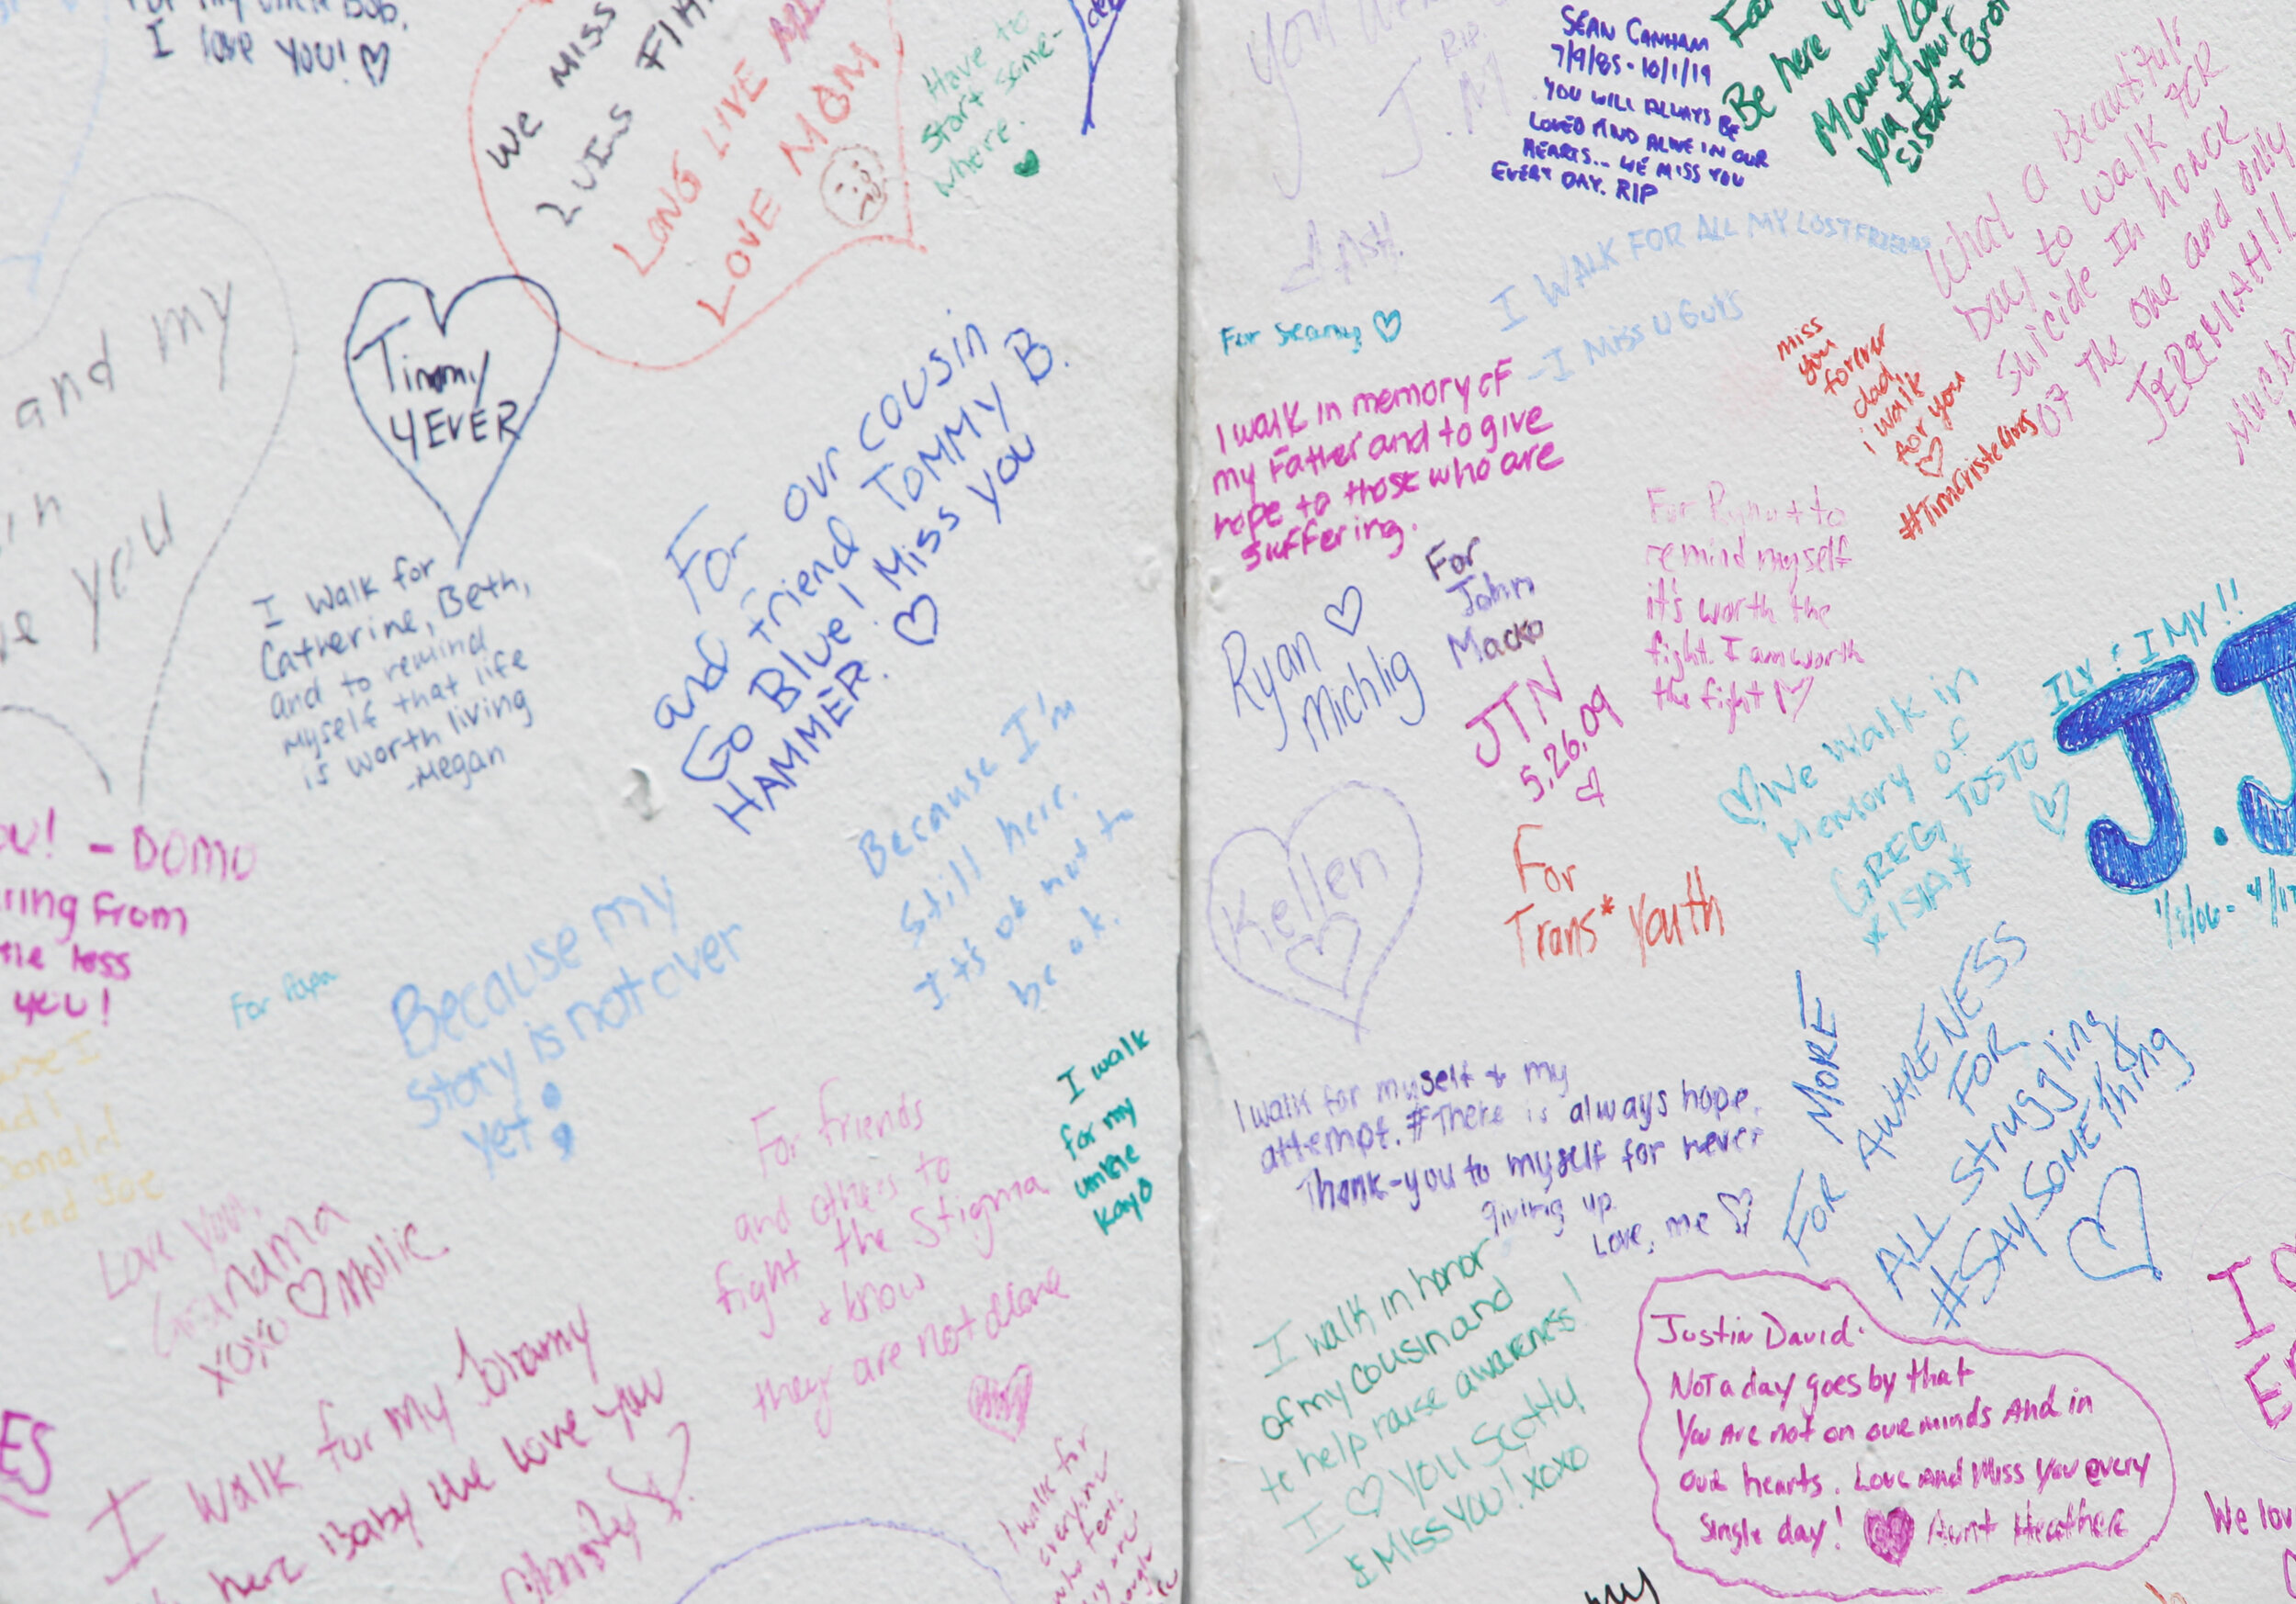 I love you! ♡
We miss
LONG LIVE
LOVE MOM
Have to
start some-
where.
and my
you
Timmy
4EVER
I walk for
Catherine, Beth,
and to remind
myself that life
is worth living
-Megan
For our cousin
and friend Tommy B.
Go Blue! Miss you
HAMMER. ♡
- DOMO
ring from
loss
you!
For Papa
Because my
story is not over
yet
Because I'm
still here.
It's ok not to
be ok.
I walk
for my
Love you,
Grandma
xoxo ♡ Mollie
For friends
and others to
fight the stigma
& know
they are not alone
I walk for my
here Baby we love you
I walk for
everyone
who feels
R.I.P.
J.M
SEAN CANHAM
7/9/85 - 10/1/19
YOU WILL ALWAYS BE
LOVED AND ALIVE IN OUR
HEARTS... WE MISS YOU
EVERY DAY. RIP
Be here
Mommy
you + your
sister +
What a Beautiful
Day to walk for
suicide In honor
of The one and only
JEREMIAH!!
I WALK FOR ALL MY LOST FRIENDS
- I MISS U GUYS
For Seamus ♡
I walk in memory of
my Father and to give
hope to those who are
suffering.
miss
you
forever
dad,
i walk
for you
♡
For
John
Macko
Ryan ♡
Michlig
JTN
5.26.09
For Ryan + to
remind myself
it's worth the
fight. I am worth
the fight ♡
♡ We walk in
Memory of
GREG TOSTO
♡
ILY & IMY!!
J.J
Kellen
For
Trans* Youth
I walk for myself & my
attempt. #There is always hope.
Thank-you to myself for never
giving up.
Love, me ♡
MORE
FOR AWARENESS
FOR
ALL Struggling
#SAYSOMEThing
I walk in honor
of my cousin and
to help raise awareness!
I ♡ you Scotty
& Miss you! xoxo
Justin David.
Not a day goes by that
You Are not on our minds And in
our hearts. Love and Miss you every
single day! ♥ Aunt Heather
We lov
my